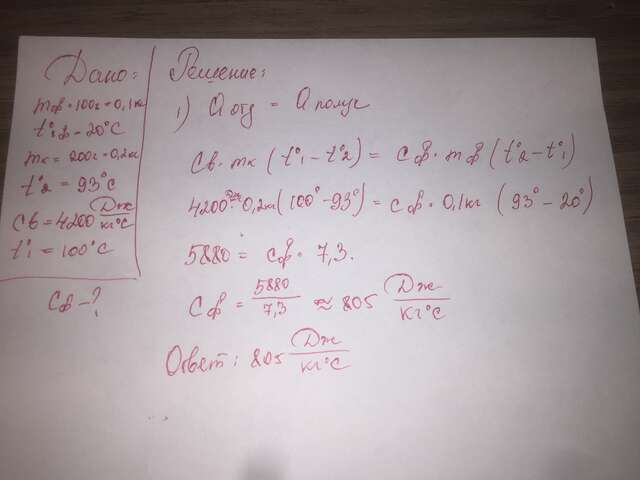 Дано:
mф = 100г = 0,1кг
t°1ф - 20°C
mк = 200г = 0,2кг
t°2 = 93°C
Cв = 4200 Дж/кг°C
t°1 = 100°C
Cф - ?
Решение:
1) Q отд = Q получ
Cв · mк (t°1 - t°2) = Cф · mф (t°2 - t°1)
4200 · 0,2кг (100° - 93°) = Cф · 0,1кг (93° - 20°)
5880 = Cф · 7,3.
Cф = 5880/7,3 ≈ 805 Дж/кг°C
Ответ: 805 Дж/кг°C